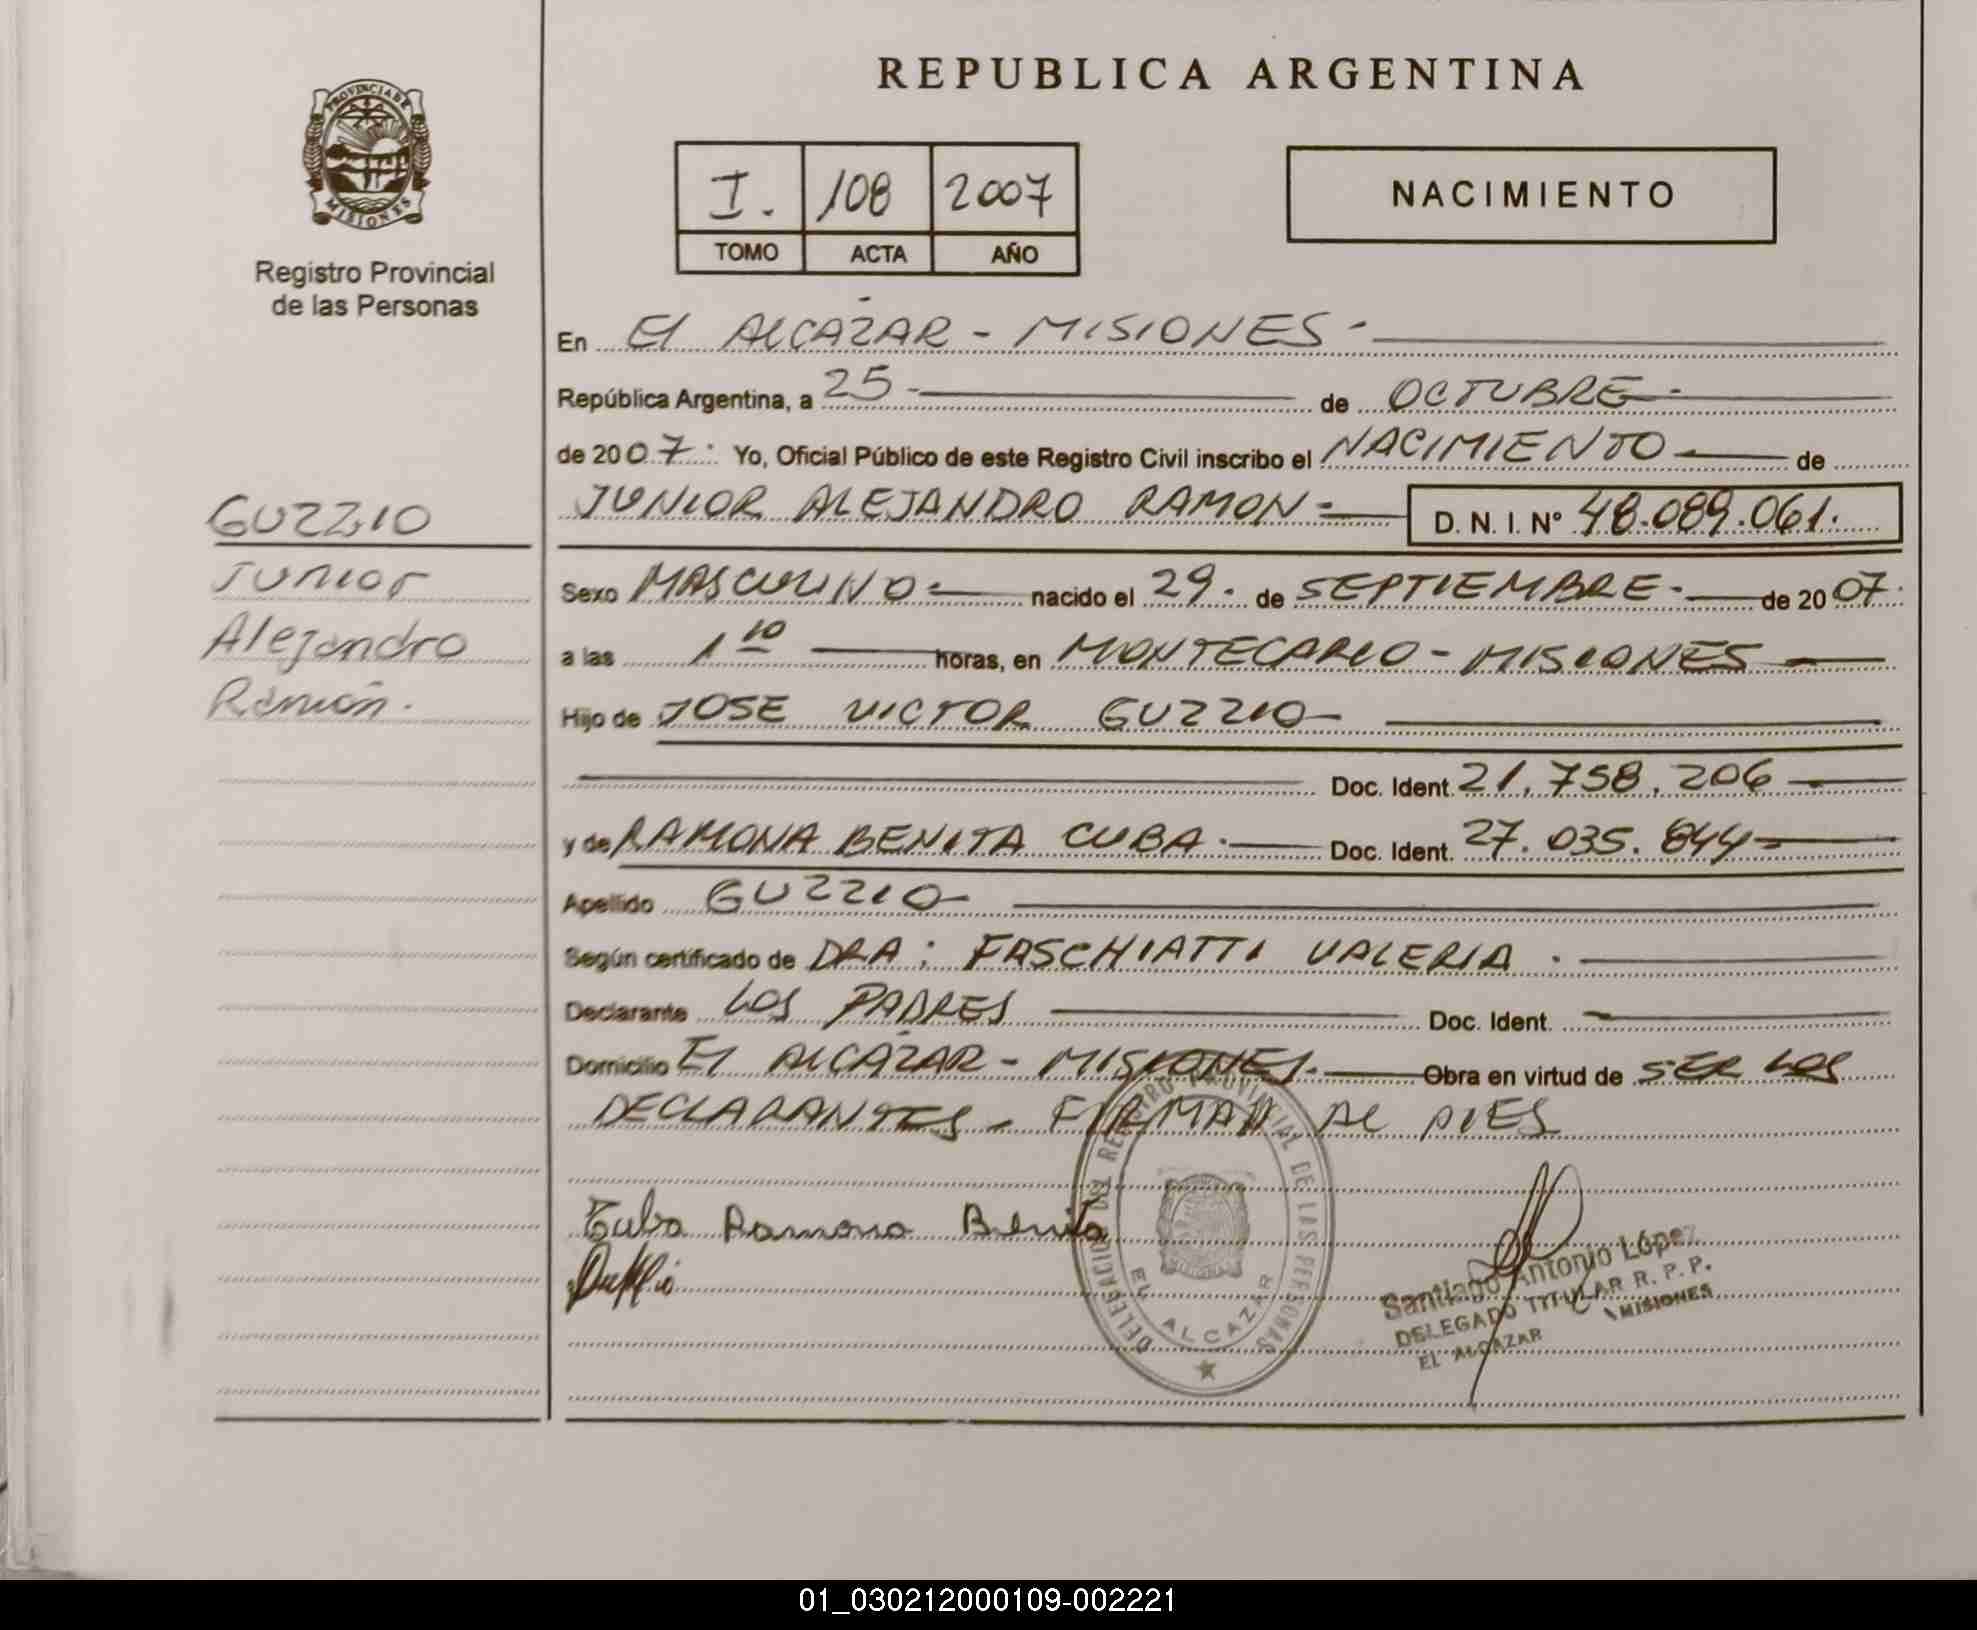 PROVINCIA DE
MISIONES
Registro Provincial
de las Personas
REPUBLICA ARGENTINA
I. 108 2007
TOMO ACTA AÑO
NACIMIENTO
En El ALCAZAR - MISIONES -
República Argentina, a 25 - de OCTUBRE -
de 2007. Yo, Oficial Público de este Registro Civil inscribo el NACIMIENTO de
JUNIOR ALEJANDRO RAMON - D. N. I. Nº 48.089.061.
GUZZIO
Junior
Alejandro
Ramón.
Sexo MASCULINO - nacido el 29. de SEPTIEMBRE - de 2007.
a las 1 10 horas, en MONTECARLO - MISIONES
Hijo de JOSE VICTOR GUZZIO
Doc. Ident. 21.758.206
y de RAMONA BENITA CUBA . Doc. Ident. 27.035.844
Apellido GUZZIO
Según certificado de DRA: FASCHIATTI VALERIA .
Declarante LOS PADRES Doc. Ident.
Domicilio El ALCAZAR - MISIONES. Obra en virtud de SER LOS
DECLARANTES - FIRMAN AL PIES
Cuba Ramona Benita
DELEGACION DEL REGISTRO PROVINCIAL DE LAS PERSONAS
EL ALCAZAR
Santiago Antonio López
DELEGADO TITULAR R. P. P.
EL ALCAZAR MISIONES
01_030212000109-002221